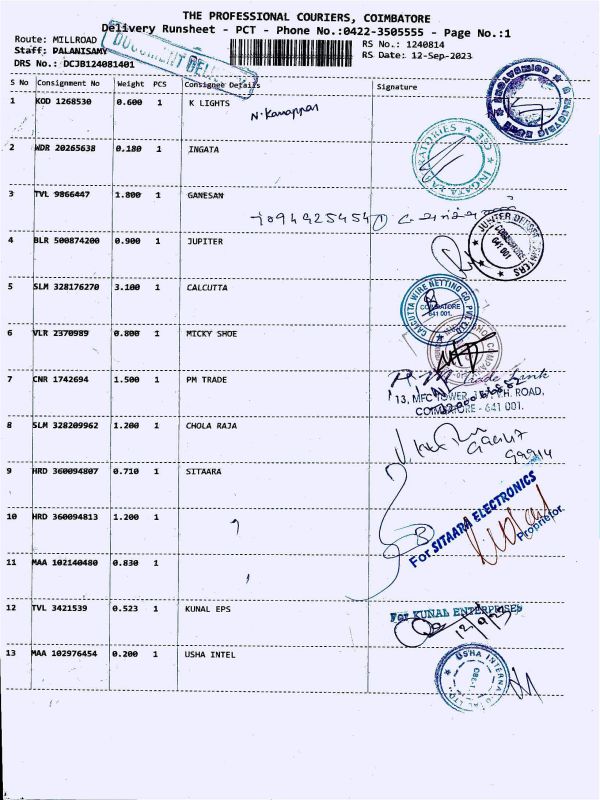 THE PROFESSIONAL COURIERS, COIMBATORE
Delivery Runsheet - PCT - Phone No.:0422-3505555 - Page No.:1
Route: MILLROAD RS No.: 1240814
Staff: PALANISAMY RS Date: 12-Sep-2023
DRS No.: DCJB124081401
DOCUMENT
S No Consignment No Weight PCS Consignee Details Signature
1 KOD 1268530 0.600 1 K LIGHTS
N. Kanappan
2 WDR 20265638 0.180 1 INGATA
INGATA
3 TVL 9866447 1.800 1 GANESAN
4 BLR 500874200 0.900 1 JUPITER
COIMBATORE
641 001
5 SLM 328176270 3.100 1 CALCUTTA
CALCUTTA WIRE NETTING CO. PVT. LTD.
COIMBATORE
641 001.
6 VLR 2370989 0.800 1 MICKY SHOE
7 CNR 1742694 1.500 1 PM TRADE
P.M Trade Link
13, MFC TOWER, V.H. ROAD,
COIMBATORE - 641 001.
8 SLM 328209962 1.200 1 CHOLA RAJA
9 HRD 360094807 0.710 1 SITAARA
For SITAARA ELECTRONICS
Proprietor
10 HRD 360094813 1.200 1
11 MAA 102140480 0.830 1
12 TVL 3421539 0.523 1 KUNAL EPS
For KUNAL ENTERPRISES
12/9/23
13 MAA 102976454 0.200 1 USHA INTEL
USHA INTERNATIONAL LTD.